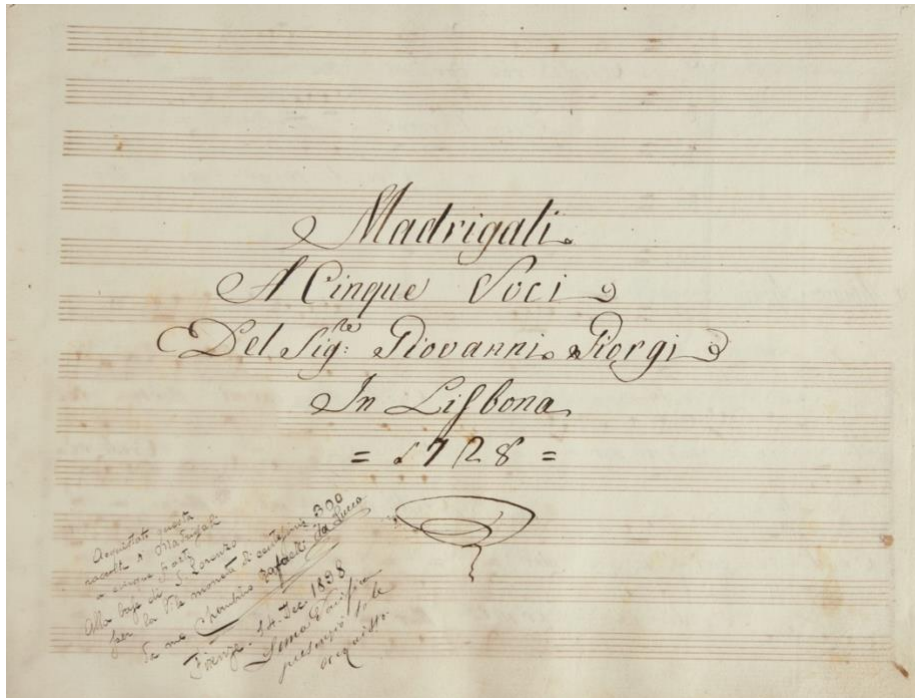 Madrigali
A Cinque Voci
Del Sig:re Giovanni Giorgi
In Lisbona
= 1728 =
Acquistato questa
raccolta di Madrigali
a cinque parti
Alla base di S. Lorenzo
per la vile moneta di centesimi 300
Da me Cherubino da Lucca
Firenze - 14. Dec. 1898
acquisto